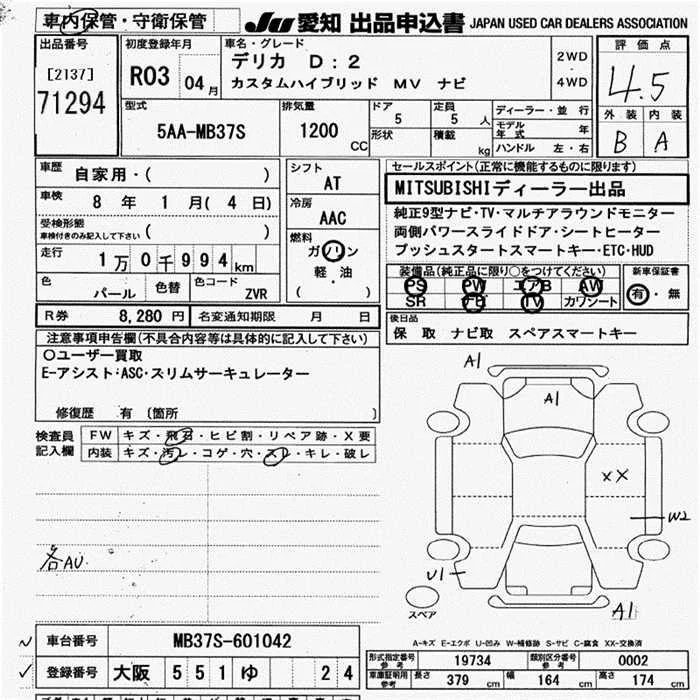 車内保管・守衛保管
JU 愛知 出品申込書 JAPAN USED CAR DEALERS ASSOCIATION
出品番号
[2137]
71294
初度登録年月
R03 04月
車名・グレード
デリカ D:2
カスタムハイブリッド MV ナビ
2WD
・
4WD
評価点
4.5
外装 内装
B A
型式
5AA-MB37S
排気量
1200 CC
ドア
5
定員
5 人
形状
積載
kg
ディーラー・並行
モデル年式 年
ハンドル 左・右
車歴
自家用・( )
車検
8 年 1 月( 4 日)
受検形態
車検付きのみ記入して下さい
( )
走行
1万0千994km
色
パール
色替
色コード
ZVR
シフト
AT
冷房
AAC
燃料
ガソリン
軽・油
( )
セールスポイント(正常に機能するものに限ります)
MITSUBISHIディーラー出品
純正9型ナビ・TV・マルチアラウンドモニター
両側パワースライドドア・シートヒーター
プッシュスタートスマートキー・ETC・HUD
装備品(純正品に限り○をつけてください)
PS PW エアB AW
SR TV カワシート
新車保証書
有・無
R券 8,280 円 名変通知期限 月 日
後日品
保 取 ナビ取 スペアスマートキー
注意事項申告欄(不具合内容等は具体的に記入して下さい)
○ユーザー買取
E-アシスト・ASC・スリムサーキュレーター
修復歴 有 〔箇所 〕
検査員
記入欄
FW キズ・飛石・ヒビ割・リペア跡・X要
内装 キズ・汚レ・コゲ・穴・スレ・キレ・破レ
各AU
A1
A1
XX
W2
U1
A1
スペア
A-キズ E-エクボ U-凹み W-補修跡 S-サビ C-腐食 XX-交換済
車台番号 MB37S-601042
登録番号 大阪 551 ゆ 24
型式指定番号
参考
19734
類別区分番号
参考
0002
車庫証明用
参考
長さ 379 cm 幅 164 cm 高さ 174 cm